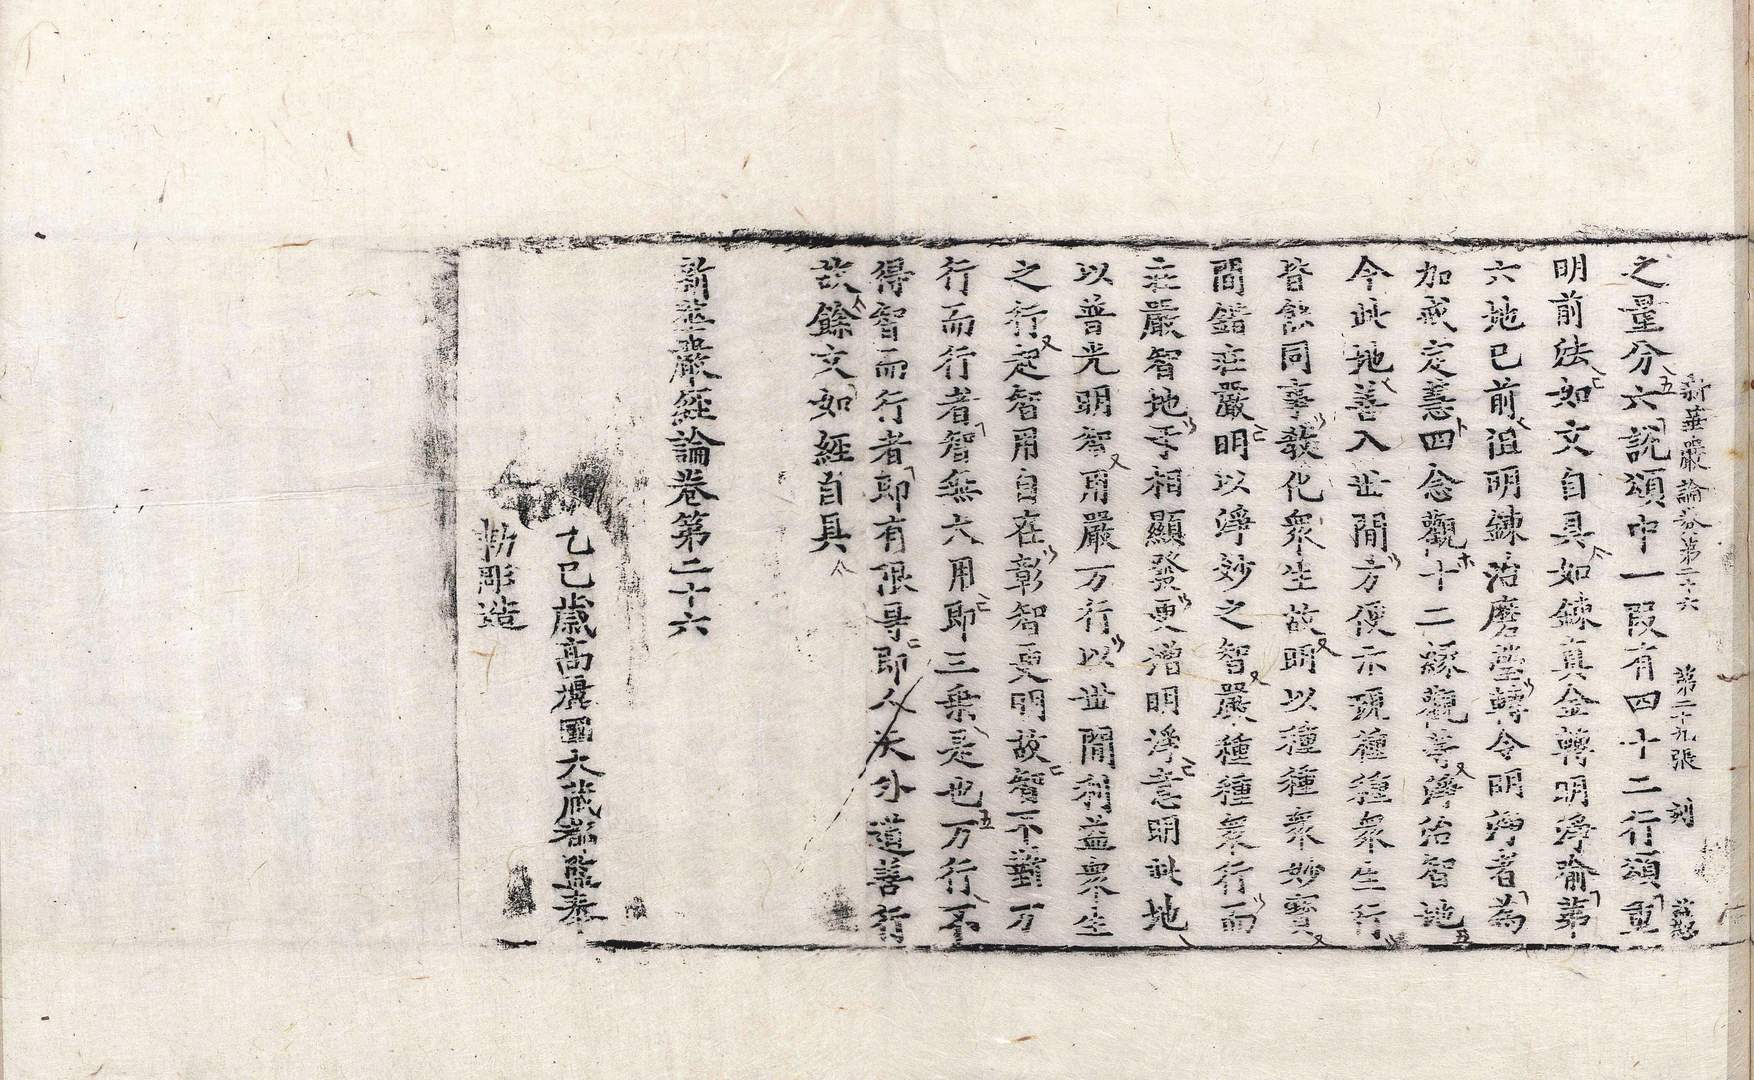 新華嚴論卷第二十六 第二十九張 刻
之量分六說頌中一段有四十二行頌重
明前法如文自具如鍊真金轉明淨喻第
六地已前但明鍊治磨瑩轉令明淨者為
加戒定慧四念觀十二緣觀等淨治智地
今此地善入世間方便示現種種衆生行
皆能同事教化衆生故明以種種衆妙寶
間錯莊嚴明以淨妙之智嚴種種衆行而
莊嚴智地互相顯發更增明淨意明此地
以普光明智用嚴万行以世間利益衆生
之行定智用自在彰智更明故智不對万
行而行者智無六用即三乗是也万行不
得智而行者即有限㝵即人天外道善行
故餘文如經自具
新華嚴經論卷第二十六
乙巳歲高麗國大藏都監奉
勅彫造